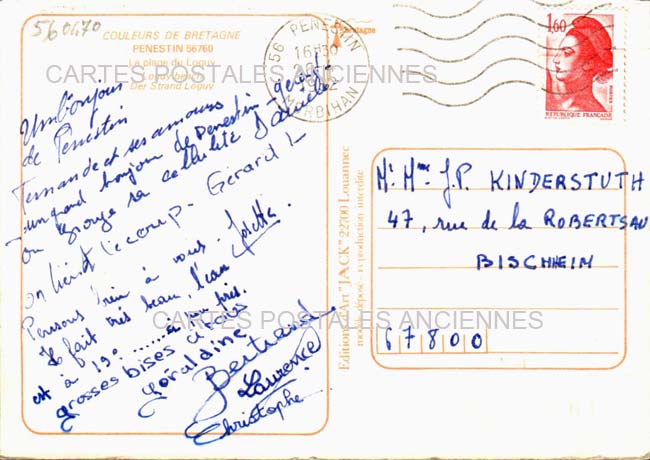 560470
COULEURS DE BRETAGNE
PENESTIN 56760
La plage du Loguy
Der Strand Loguy
Un bonjour
de Pénestin
Fernande et ses amours
un grand bonjour de Penestin Gérard
On Gérard L
on tient l'coup.
Pensons bien à vous. Josette
Il fait très beau, l'eau
est à 19° ........ à peu près.
grosses bises à vous
Géraldine
Bertrand
Laurence
Christophe
Editions d'Art "JACK" 22700 Louannec
modèle déposé - reproduction interdite
56 PENESTIN
16H30
MORBIHAN
1,60
REPUBLIQUE FRANÇAISE
Mr Mme J.P. KINDERSTUTH
47, rue de la ROBERTSAU
BISCHHEIM
67800
CARTES POSTALES ANCIENNES
CARTES POSTALES ANCIENNES